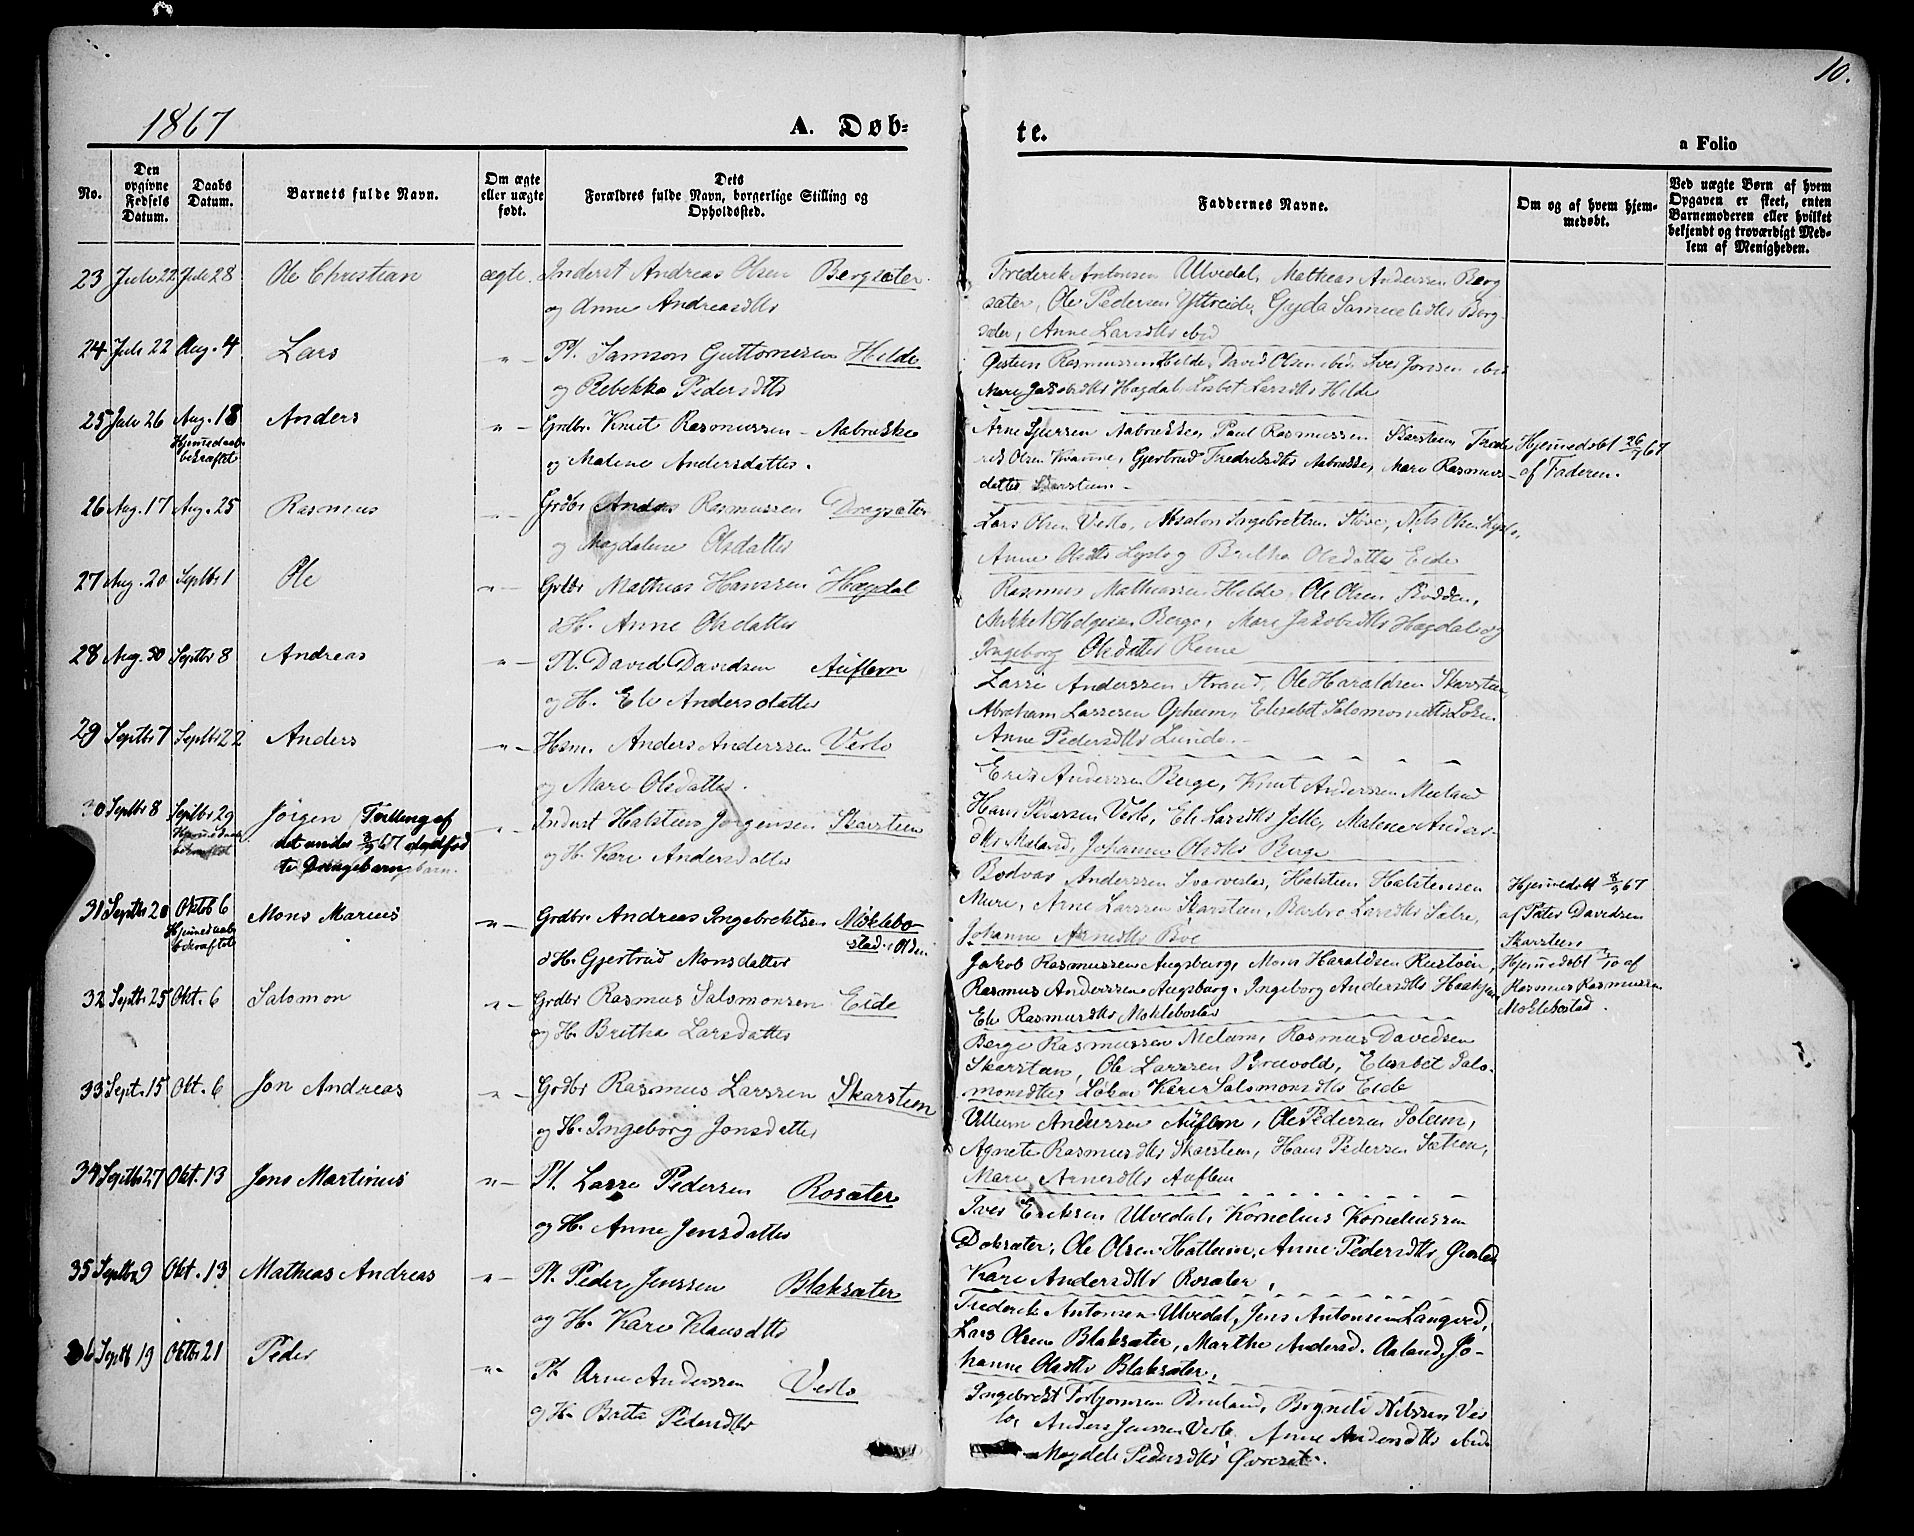 10.
1867
A. Døb-
te.
a Folio
No.
Den opgivne Fødsels Datum.
Daabs Datum.
Barnets fulde Navn.
Om ægte eller uægte født.
Dets Forældres fulde Navn, borgerlige Stilling og Opholdssted.
Faddernes Navne.
Om og af hvem hjemmedøbt.
Ved uægte Børn af hvem Opgaven er skeet, enten Barnemoderen eller hvilket bekjendt og troværdigt Medlem af Menigheden.
23 Juli 22 Juli 28 Ole Christian ægte. Inderst Andreas Olsen Bergsæter.
og Anne Andreasdttr
Frederik Antonsen Ulvedal, Mathias Anderssen Berg
sæter, Ole Pedersen Yttreide, Gyda Samuelsdttr Berg-
sæter, Anne Larsdttr ibid
24 Juli 22 Aug. 4 Lars " Pl. Samson Guttormsen Hilde
og Rebekka Pedersdttr
Øistein Rasmussen Hilde, David Olsen ibid, Iver Jonsen ibid
Mari Jakobsdttr Hægdal, Lisbet Larsdttr Hilde
25 Juli 26 Aug. 18 Anders " Grdbr. Knut Rasmussen Aabrække
Hjemmedaab
bekræftet
og Malene Andersdatter.
Arne Sjursen Aabrække, Paul Rasmussen Skarstein, Frede
rik Olsen Kvamme, Gjertrud Fredriksdttr Aabrække, Mari Rasmus-
datter Skarstein.
Hjemmedøbt 26/7 67
af Faderen.
26 Aug. 17 Aug. 25 Rasmus " Grdbr Anders Rasmussen Dregsæter
og Magdalene Olsdatter
Lars Olsen Vedlo, Absalon Ingebrektsen Støve, Nils Olsen Lyslo,
Anne Olsdttr Lyslo og Britha Olsdatter Eide
27 Aug. 20 Septbr 1 Ole " Grdbr Mathias Hanssen Hægdal
& H. Anne Olsdatter
Rasmus Mathiassen Hilde, Ole Olsen Bødden,
Mikkel Helgesen Berge, Mari Jakobsdttr Hægdal og
Ingeborg Olsdatter Renne
28 Aug. 30 Septbr 8 Andreas " Pl. David Davidsen Auflem
og H. Eli Andersdatter
Lasse Anderssen Strand, Ole Haraldsen Skarstein
Abraham Lassesen Opheim, Elisabet Salomonsdttr Løken
Anne Pedersdttr Lunde.
29 Septbr 7 Septbr 22 Anders " Hsm. Anders Anderssen Vedlo
og Mari Olsdatter.
Erik Anderssen Berge, Knut Anderssen Meland
Hans Pedersen Vedlo, Eli Larsdttr Jelle, Malene Anders-
dttr Meland, Johanne Olsdttr Berge
30 Septbr 8 Septbr 29 Jörgen Tvilling af " Inderst Halstein Jørgensen Skarstein
Hjemmedaab
bekræftet
det under 8/9 67 dødfød
te Drengebarn
og H. Kari Andersdatter
Bødvar Anderssen
Halstein Halstensen
Muri, Arne Larssen Skarstein, Barbro Larsdttr Sætre,
Johanne Arnesdttr Boe
Hjemmedøbt 8/9 67
af Peter Davidsen
Skarstein
31 Septbr 20 Oktb 6 Mons Marius " Grdbr. Andreas Ingebrektsen Möklebo-
Hjemmedaab
bekræftet
stad, Olden
& H. Gjertrud Monsdatter
Jakob Rasmussen Augsburg, Mons Haraldsen Rustøen,
Rasmus Anderssen Augsburg, Ingeborg Andersdttr
Eli Rasmusdttr Møklebostad
Hjemmedøbt
af
Rasmus Rasmussen
Møklebostad.
32 Septbr 25 Okt. 6 Salomon " Grdbr Rasmus Salomonsen Eide
og H. Britha Larsdatter
Berge Rasmussen Melum, Rasmus Davidsen
Skarstein, Ole Larssen Brevold, Elisabet Salo-
monsdtter Løken Kari Salomonsdttr Eide
33 Sept. 15 Okt. 6 Jon Andreas " Grdbr Rasmus Larssen Skarstein
og H. Ingeborg Jonsdatter
Villum Anderssen Auflem, Ole Pedersen Solem,
Agnete Rasmusdttr Skarstein, Hans Pedersen Sætren,
Mari Arnesdttr Auflem
34 Septbr 27 Okt. 13 Jens Martinus " Pl. Lasse Pedersen Rosæter
og H. Anne Jensdatter
Iver Eriksen Ulvedal, Kornelius Korneliussen
Doksæter, Ole Olsen Hatlem, Anne Pedersdttr,
Kari Andersdttr Rosæter,
35 Septbr 9 Okt. 13 Mathias Andreas " Pl. Peder Jenssen Blaksæter
og H. Kari Klausdttr
Frederik Antonsen Ulvedal, Jens Antonsen Langved,
Lars Olsen Blaksæter, Marthe Andersd. Aaland, Jo-
hanne Olsdttr Blaksæter,
36 Septb 19 Oktbr 21 Peder " Pl. Arne Anderssen Vedlo
og H. Brita Pedersdttr
Ingebrekt Torbjørnsen Bruland, Brynild Nilssen Ved
lo, Anders Jenssen Vedlo, Anne Andersdttr ibid
Magdeli Pedersdttr Øvreset.